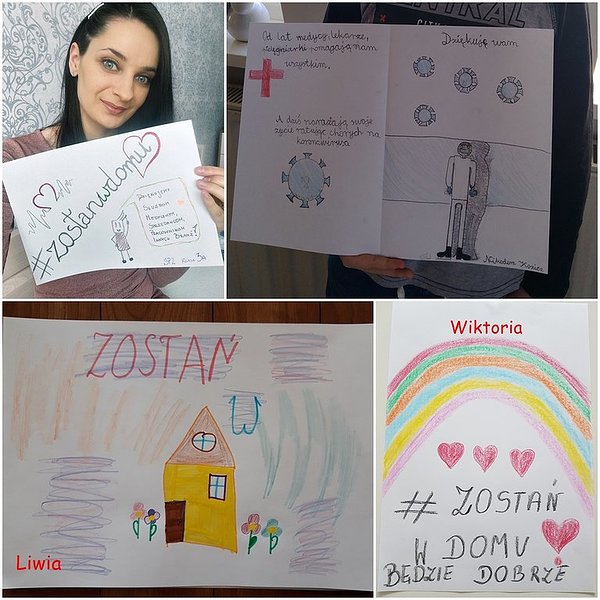 #zostańwdomu
DZIĘKUJEMY
SŁUŻBOM
MEDYCZNYM,
STRAŻAKOM,
PRACOWNIKOM
SP2 Klasa 3A
Od lat medycy, lekarze,
pielęgniarki pomagają nam
wszystkim,
A dziś narażają swoje
życie ratując chorych na
koronawirusa
Dziękuję wam
Nikodem
ZOSTAŃ
W
Liwia
Wiktoria
# ZOSTAŃ
W DOMU
BĘDZIE DOBRZE